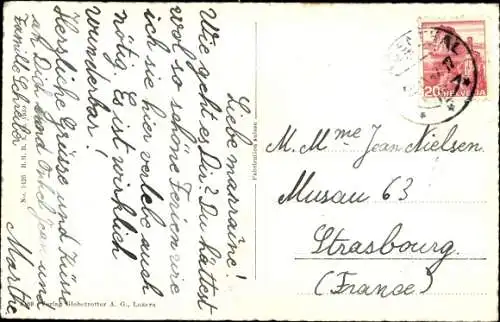 Liebe marraine!
Wie geht es Dir? Du hättest
wol so schöne Ferien wie
ich sie hier verlebe auch
nötig. Es ist wirklich
wunderbar!
Herzliche Grüsse und Küsse
an Dich und Onkel Jean und
Famille Schäffer
Martie
M. Mme Jean Nielsen
Musau 63
Strasbourg.
(France)
20 HELVETIA
Globetrotter A. G., Luzern